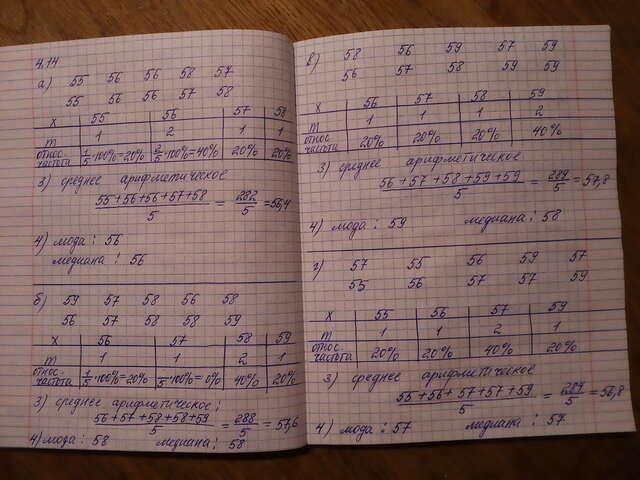 4,14
а) 55 56 56 58 57
55 56 56 57 58
x 55 56 57 58
m 1 2 1 1
относ. частота 1/5·100%=20% 2/5·100%=40% 20% 20%
3) среднее арифметическое
55+56+56+57+58/5 = 282/5 = 56,4
4) мода: 56
медиана: 56
б) 59 57 58 56 58
56 57 58 58 59
x 56 57 58 59
m 1 1 2 1
относ. частота 1/5·100%=20% 1/5·100%=0% 40% 20%
3) среднее арифметическое:
56+57+58+58+59/5 = 288/5 = 57,6
4) мода: 58 медиана: 58
в) 58 56 59 57 59
56 57 58 59 59
x 56 57 58 59
m 1 1 1 2
относ. частота 20% 20% 20% 40%
3) среднее арифметическое
56+57+58+59+59/5 = 289/5 = 57,8
4) мода: 59 медиана: 58
г) 57 55 56 59 57
55 56 57 57 59
x 55 56 57 59
m 1 1 2 1
относ. частота 20% 20% 40% 20%
3) среднее арифметическое
55+56+57+57+59/5 = 284/5 = 56,8
4) мода: 57 медиана: 57